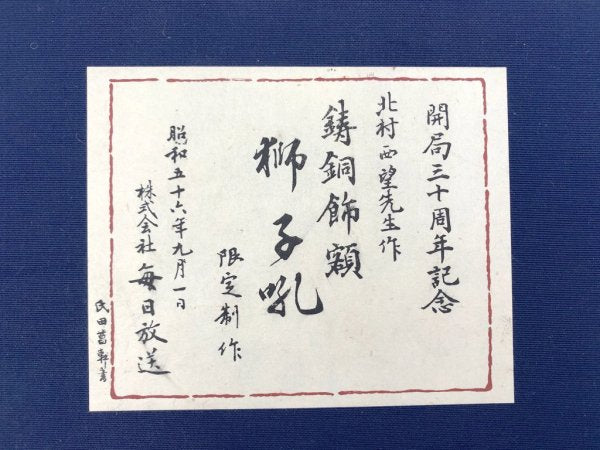 開局三十周年記念
北村西望先生作
鋳銅飾額
獅子吼
限定制作
昭和五十六年九月一日
株式会社 毎日放送